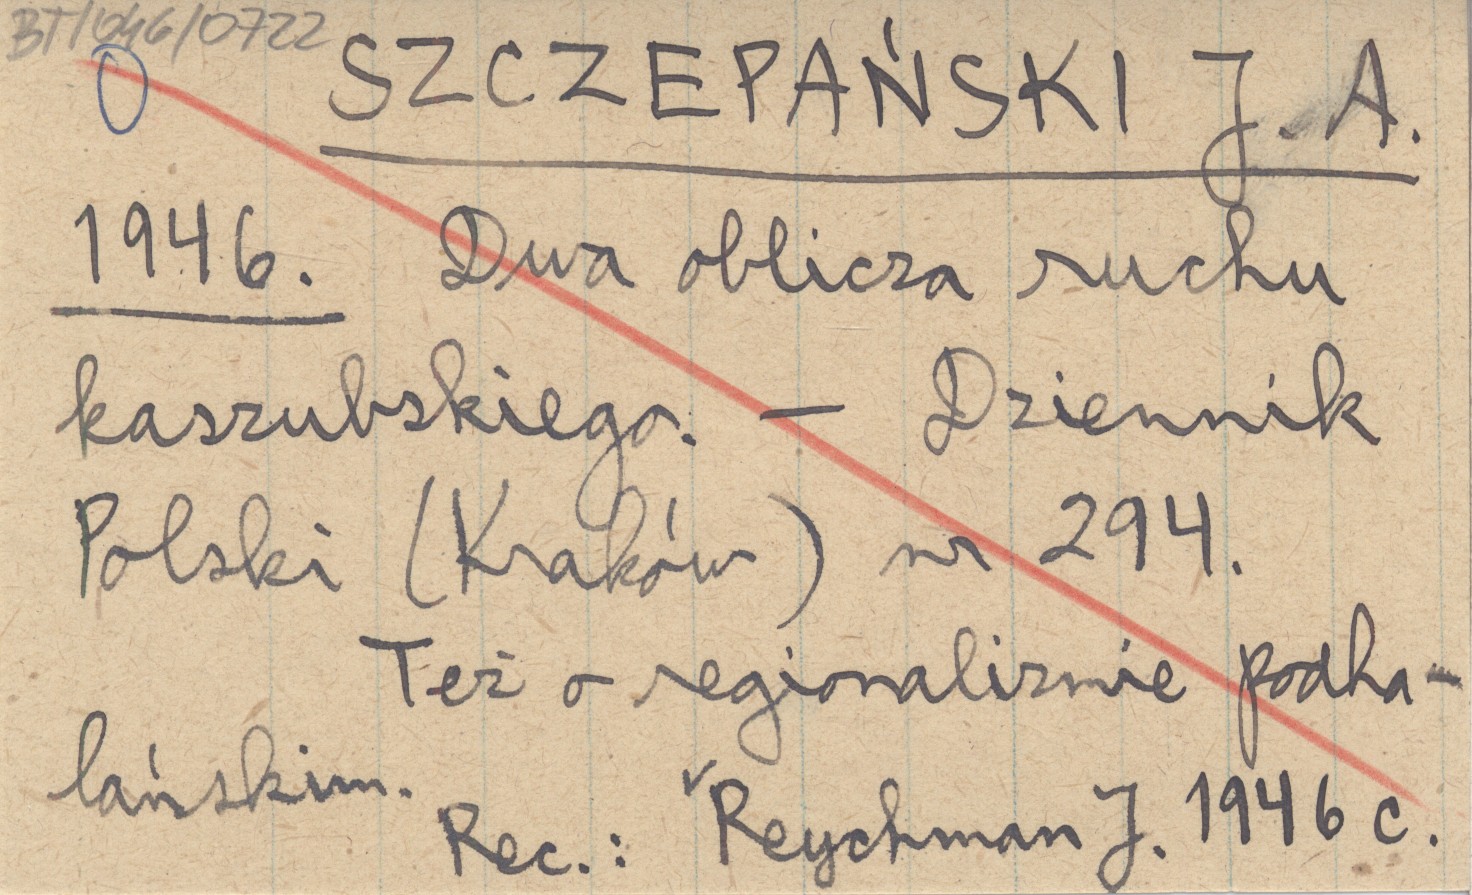 BT/046/0722
SZCZEPAŃSKI J. A.
1946. Dwa oblicza ruchu
kaszubskiego. — Dziennik
Polski (Kraków) nr 294.
Też o regionalizmie podha-
lańskim.
Rec.: Reychman J. 1946 c.